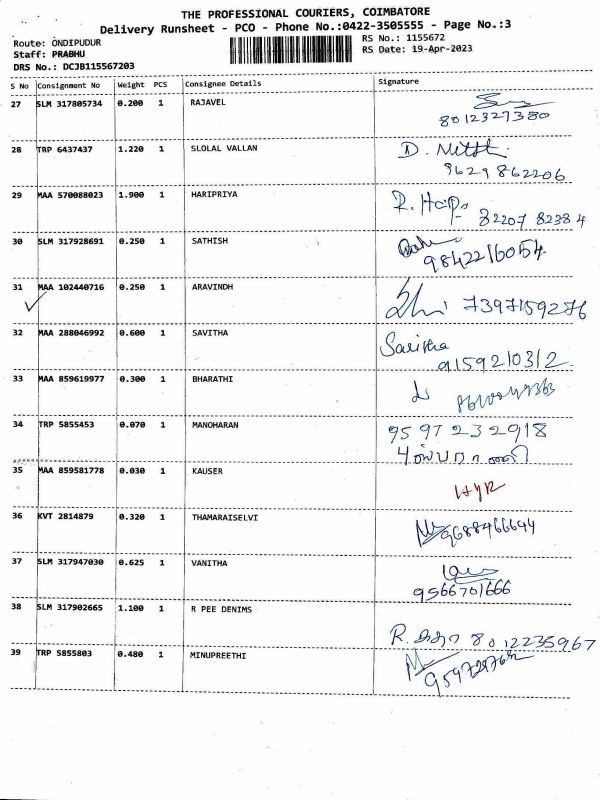 THE PROFESSIONAL COURIERS, COIMBATORE
Delivery Runsheet - PCO - Phone No.:0422-3505555 - Page No.:3
Route: ONDIPUDUR RS No.: 1155672
Staff: PRABHU RS Date: 19-Apr-2023
DRS No.: DCJB115567203
S No Consignment No Weight PCS Consignee Details Signature
27 SLM 317805734 0.200 1 RAJAVEL
8012327380
28 TRP 6437437 1.220 1 SLOLAL VALLAN D.
9629862206
29 MAA 570088023 1.900 1 HARIPRIYA R.
82207 82384
30 SLM 317928691 0.250 1 SATHISH
9842216054
31 MAA 102440716 0.250 1 ARAVINDH 7397159276
32 MAA 288046992 0.600 1 SAVITHA Savitha
9159210312
33 MAA 859619977 0.300 1 BHARATHI
34 TRP 5855453 0.070 1 MANOHARAN 95 97 232918
35 MAA 859581778 0.030 1 KAUSER
36 KVT 2814879 0.320 1 THAMARAISELVI
9688466644
37 SLM 317947030 0.625 1 VANITHA
9566701666
38 SLM 317902665 1.100 1 R PEE DENIMS
R. 8012235967
39 TRP 5855803 0.480 1 MINUPREETHI